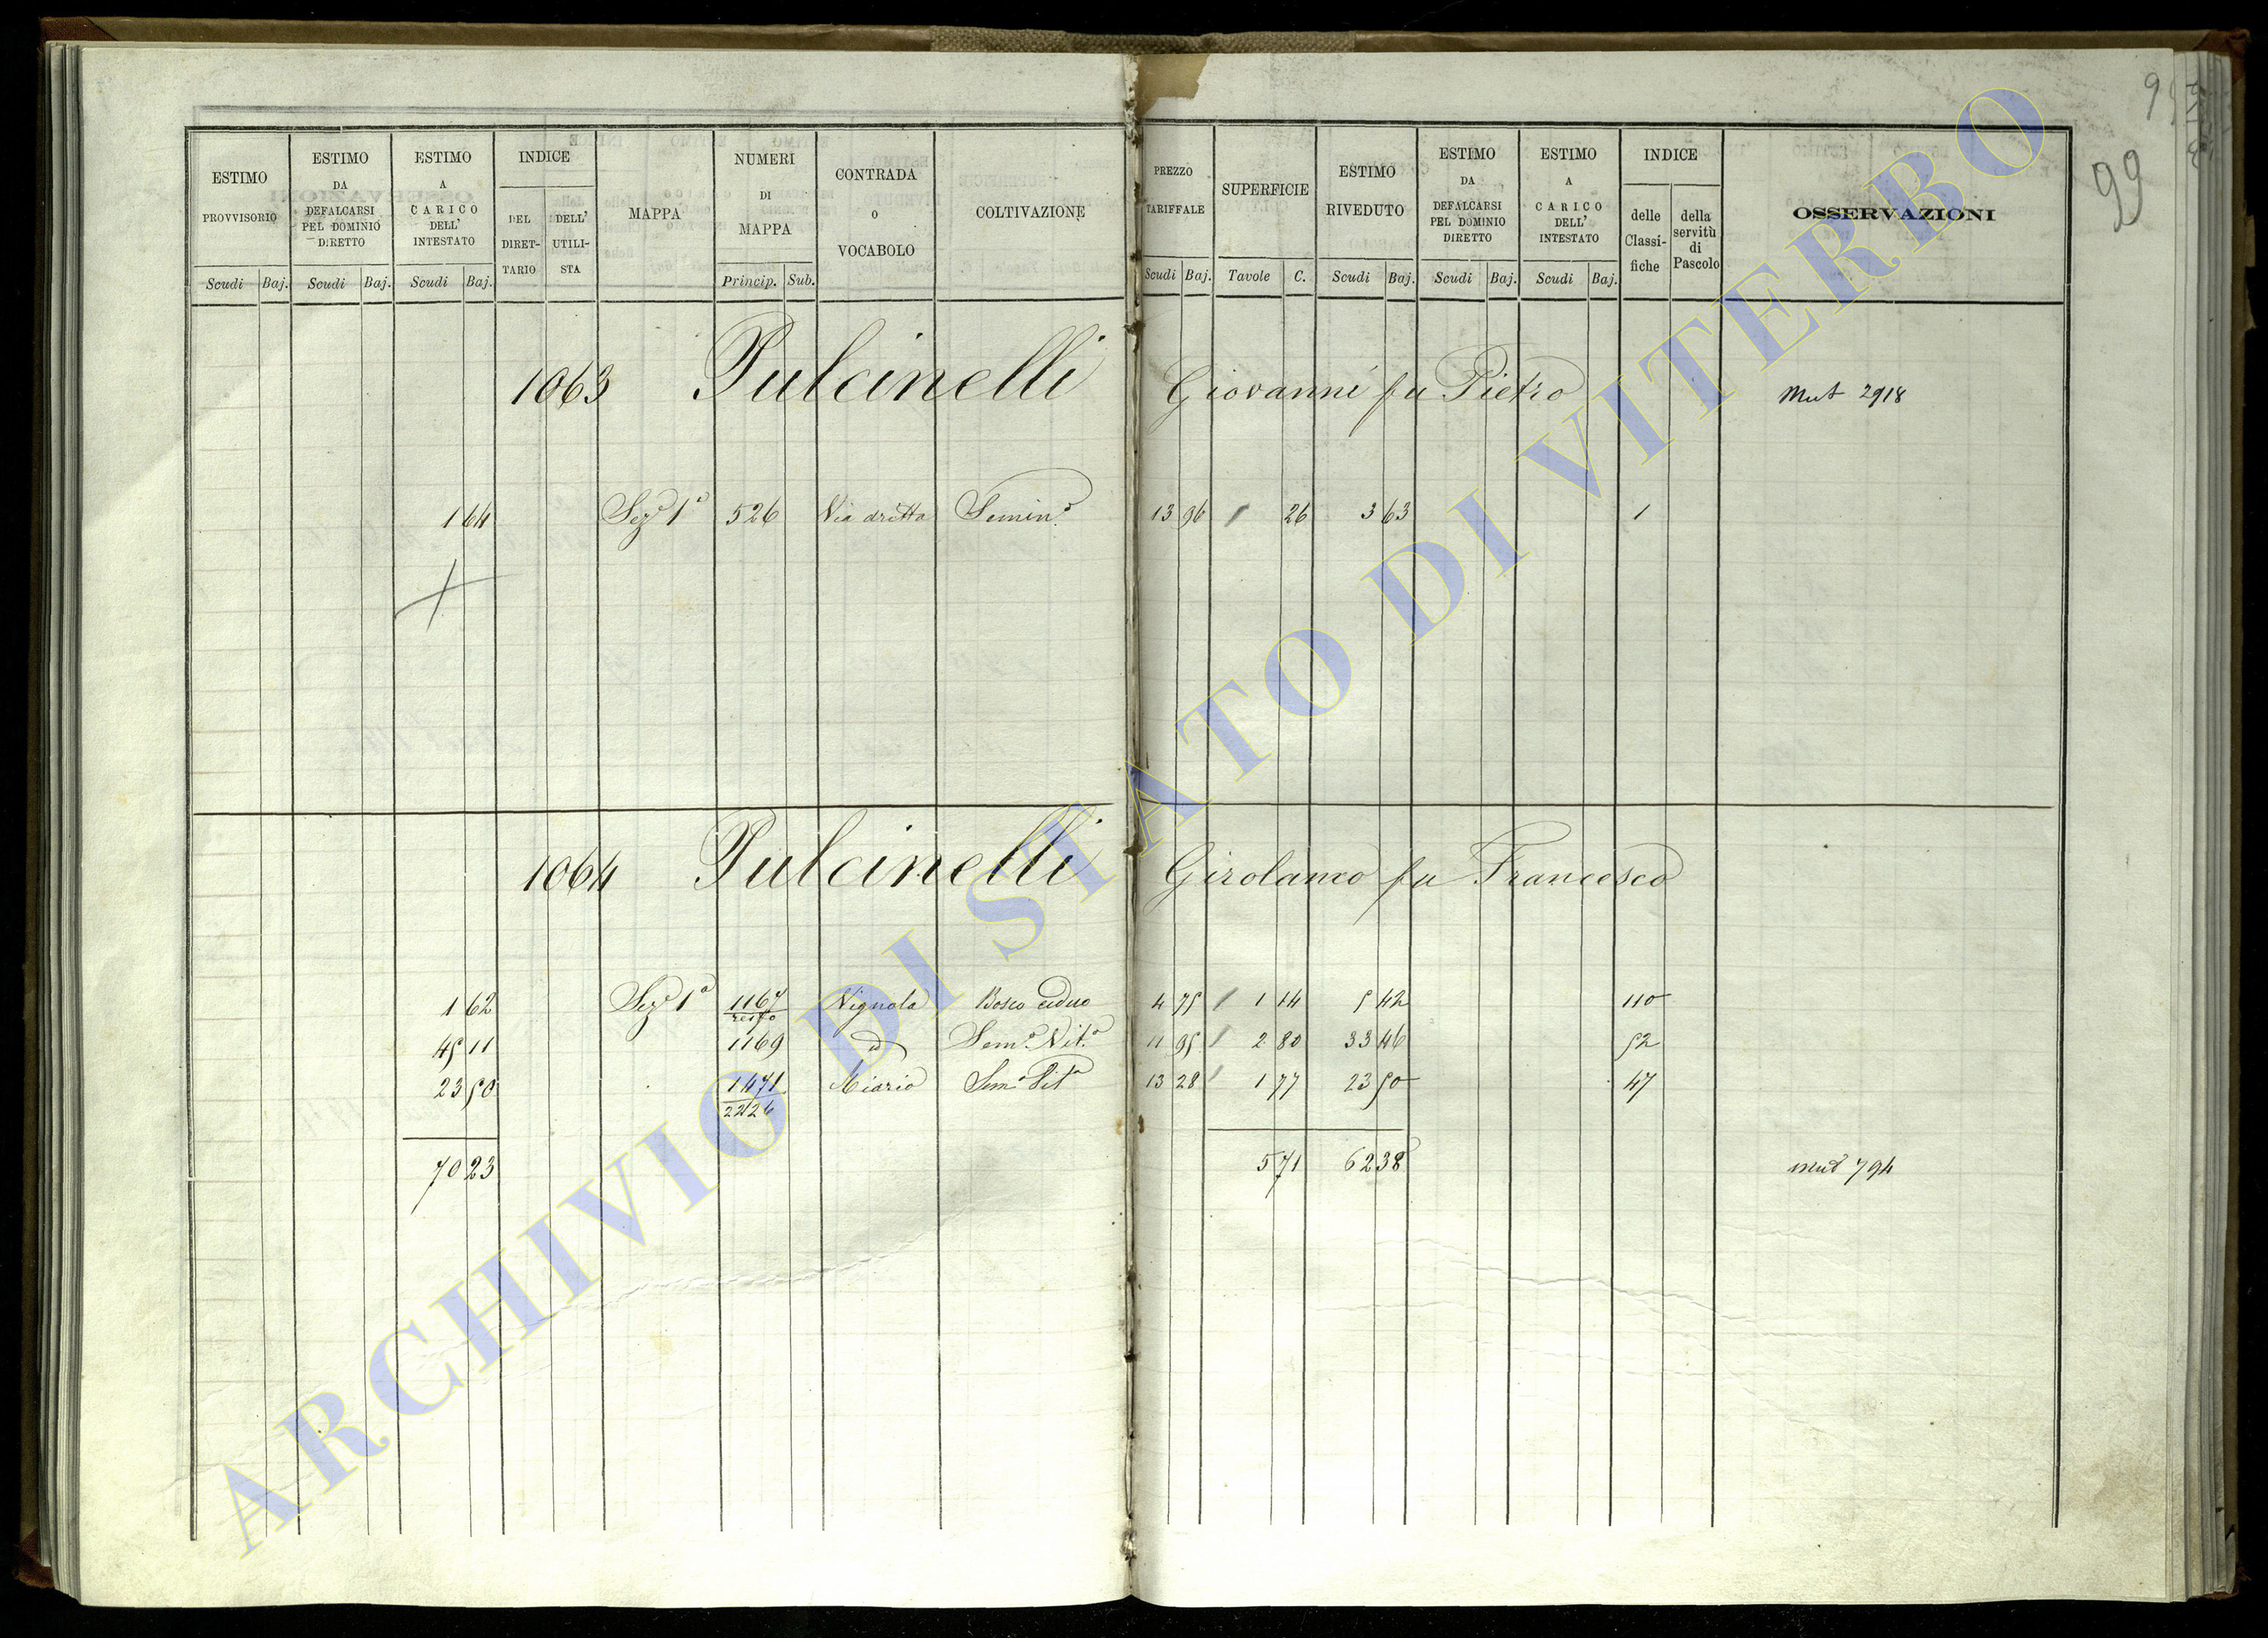 99
ESTIMO PROVVISORIO | ESTIMO DA DEFALCARSI PEL DOMINIO DIRETTO | ESTIMO A CARICO DELL' INTESTATO | INDICE | MAPPA | NUMERI DI MAPPA | CONTRADA O VOCABOLO | COLTIVAZIONE | PREZZO TARIFFALE | SUPERFICIE | ESTIMO RIVEDUTO | ESTIMO DA DEFALCARSI PEL DOMINIO DIRETTO | ESTIMO A CARICO DELL' INTESTATO | INDICE | OSSERVAZIONI
DEL DIRETTARIO | DELL' UTILISTA | delle Classifiche | della servitù di Pascolo
Scudi Baj. | Scudi Baj. | Scudi Baj. | Princip. Sub. | Scudi Baj. | Tavole C. | Scudi Baj. | Scudi Baj. | Scudi Baj.
1063 Pulcinelli Giovanni fu Pietro Mut 2918
1 64 Seze 1a 526 Via dritta Semino 13 96 26 3 63 1
1064 Pulcinelli Girolamo fu Francesco
1 62 Seze 1a 1167 resto Vignola Bosco ceduo 4 75 1 14 5 42 110
45 11 1169 d Semo Vito 11 95 2 80 33 46 52
23 50 1471 2226 Semo Vito 13 28 1 77 23 50 47
70 23 5 71 62 38 mut 794
ARCHIVIO DI STATO DI VITERBO